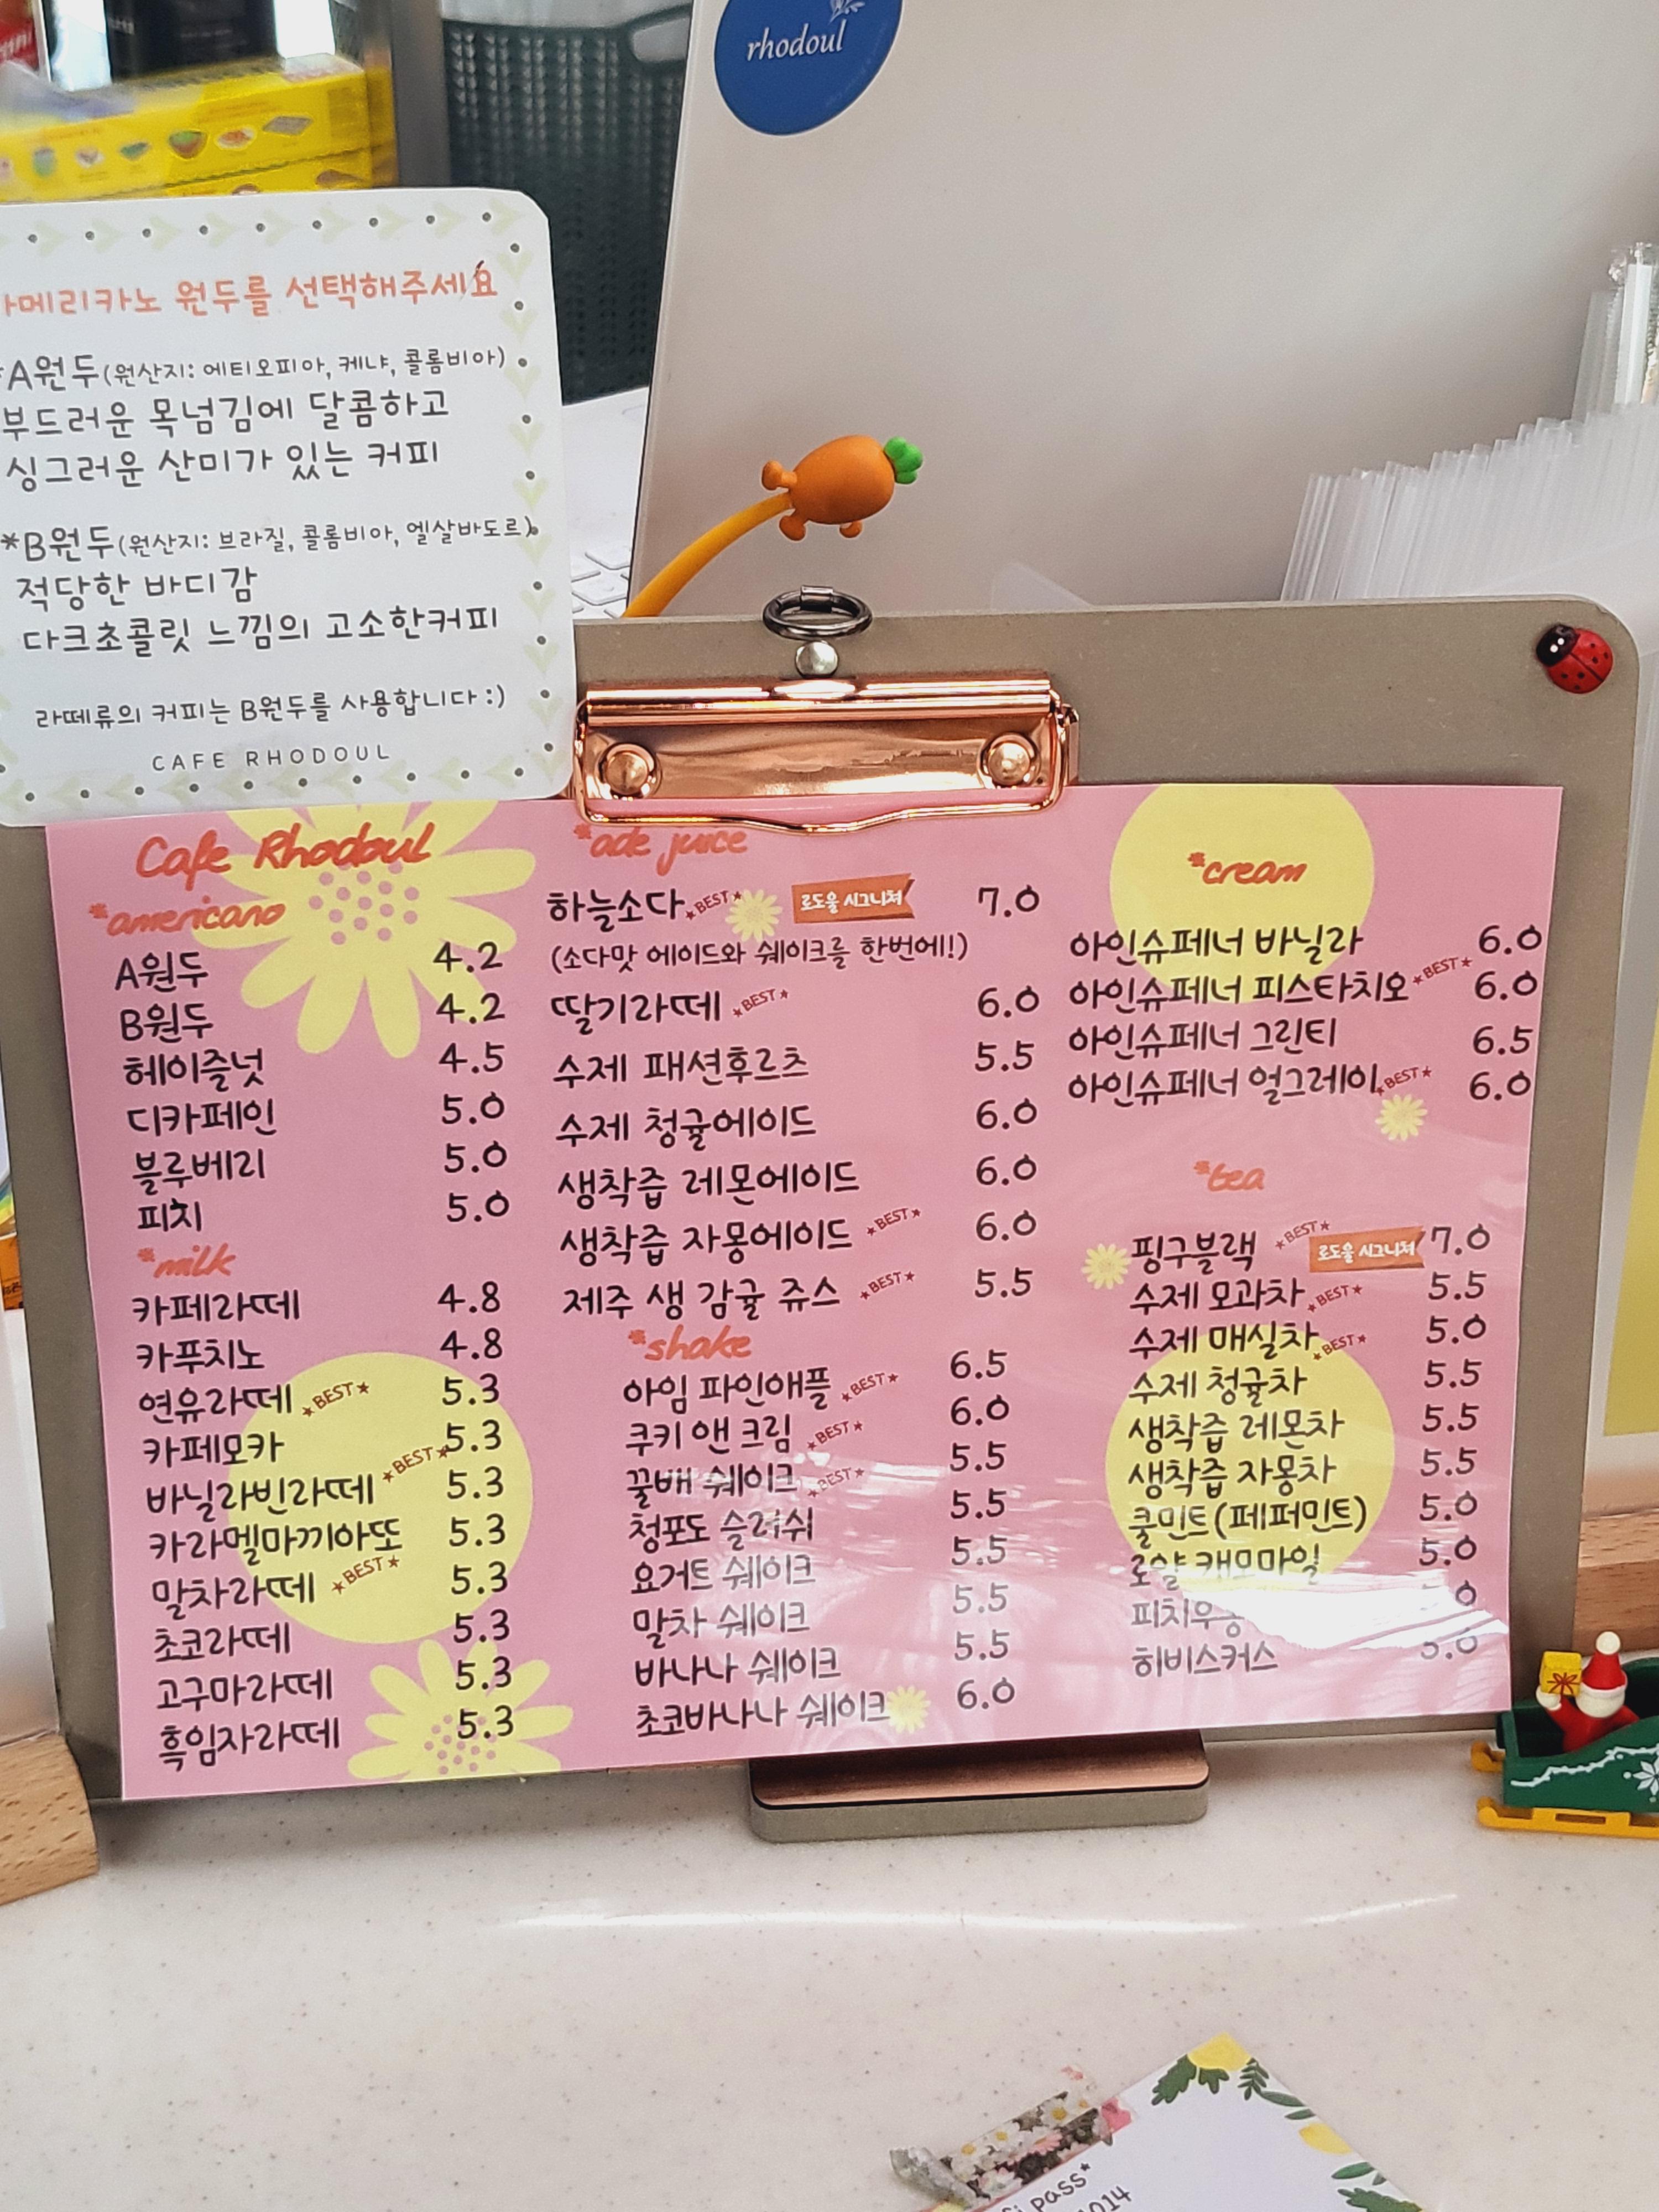 rhodoul
아메리카노 원두를 선택해주세요
*A원두(원산지: 에티오피아, 케냐, 콜롬비아)
부드러운 목넘김에 달콤하고
싱그러운 산미가 있는 커피
*B원두(원산지: 브라질, 콜롬비아, 엘살바도르)
적당한 바디감
다크초콜릿 느낌의 고소한커피
라떼류의 커피는 B원두를 사용합니다 :)
CAFE RHODOUL
Cafe Rhodoul
*americano
A원두 4.2
B원두 4.2
헤이즐넛 4.5
디카페인 5.0
블루베리 5.0
피치 5.0
*milk
카페라떼 4.8
카푸치노 4.8
연유라떼 *BEST* 5.3
카페모카 5.3
바닐라빈라떼 *BEST* 5.3
카라멜마끼아또 5.3
말차라떼 *BEST* 5.3
초코라떼 5.3
고구마라떼 5.3
흑임자라떼 5.3
*ade juice
하늘소다 *BEST* 로도울 시그니쳐 7.0
(소다맛 에이드와 쉐이크를 한번에!)
딸기라떼 *BEST* 6.0
수제 패션후르츠 5.5
수제 청귤에이드 6.0
생착즙 레몬에이드 6.0
생착즙 자몽에이드 *BEST* 6.0
제주 생 감귤 쥬스 *BEST* 5.5
*shake
아임 파인애플 *BEST* 6.5
쿠키 앤 크림 *BEST* 6.0
꿀배 쉐이크 *BEST* 5.5
청포도 슬러쉬 5.5
요거트 쉐이크 5.5
말차 쉐이크 5.5
바나나 쉐이크 5.5
초코바나나 쉐이크 6.0
*cream
아인슈페너 바닐라 6.0
아인슈페너 피스타치오 *BEST* 6.0
아인슈페너 그린티 6.5
아인슈페너 얼그레이 *BEST* 6.0
*tea
핑구블랙 *BEST* 로도울 시그니쳐 7.0
수제 모과차 *BEST* 5.5
수제 매실차 *BEST* 5.0
수제 청귤차 5.5
생착즙 레몬차 5.5
생착즙 자몽차 5.5
쿨민트(페퍼민트) 5.0
로얄 캐모마일 5.0
피치우롱
히비스커스 5.0
pass*